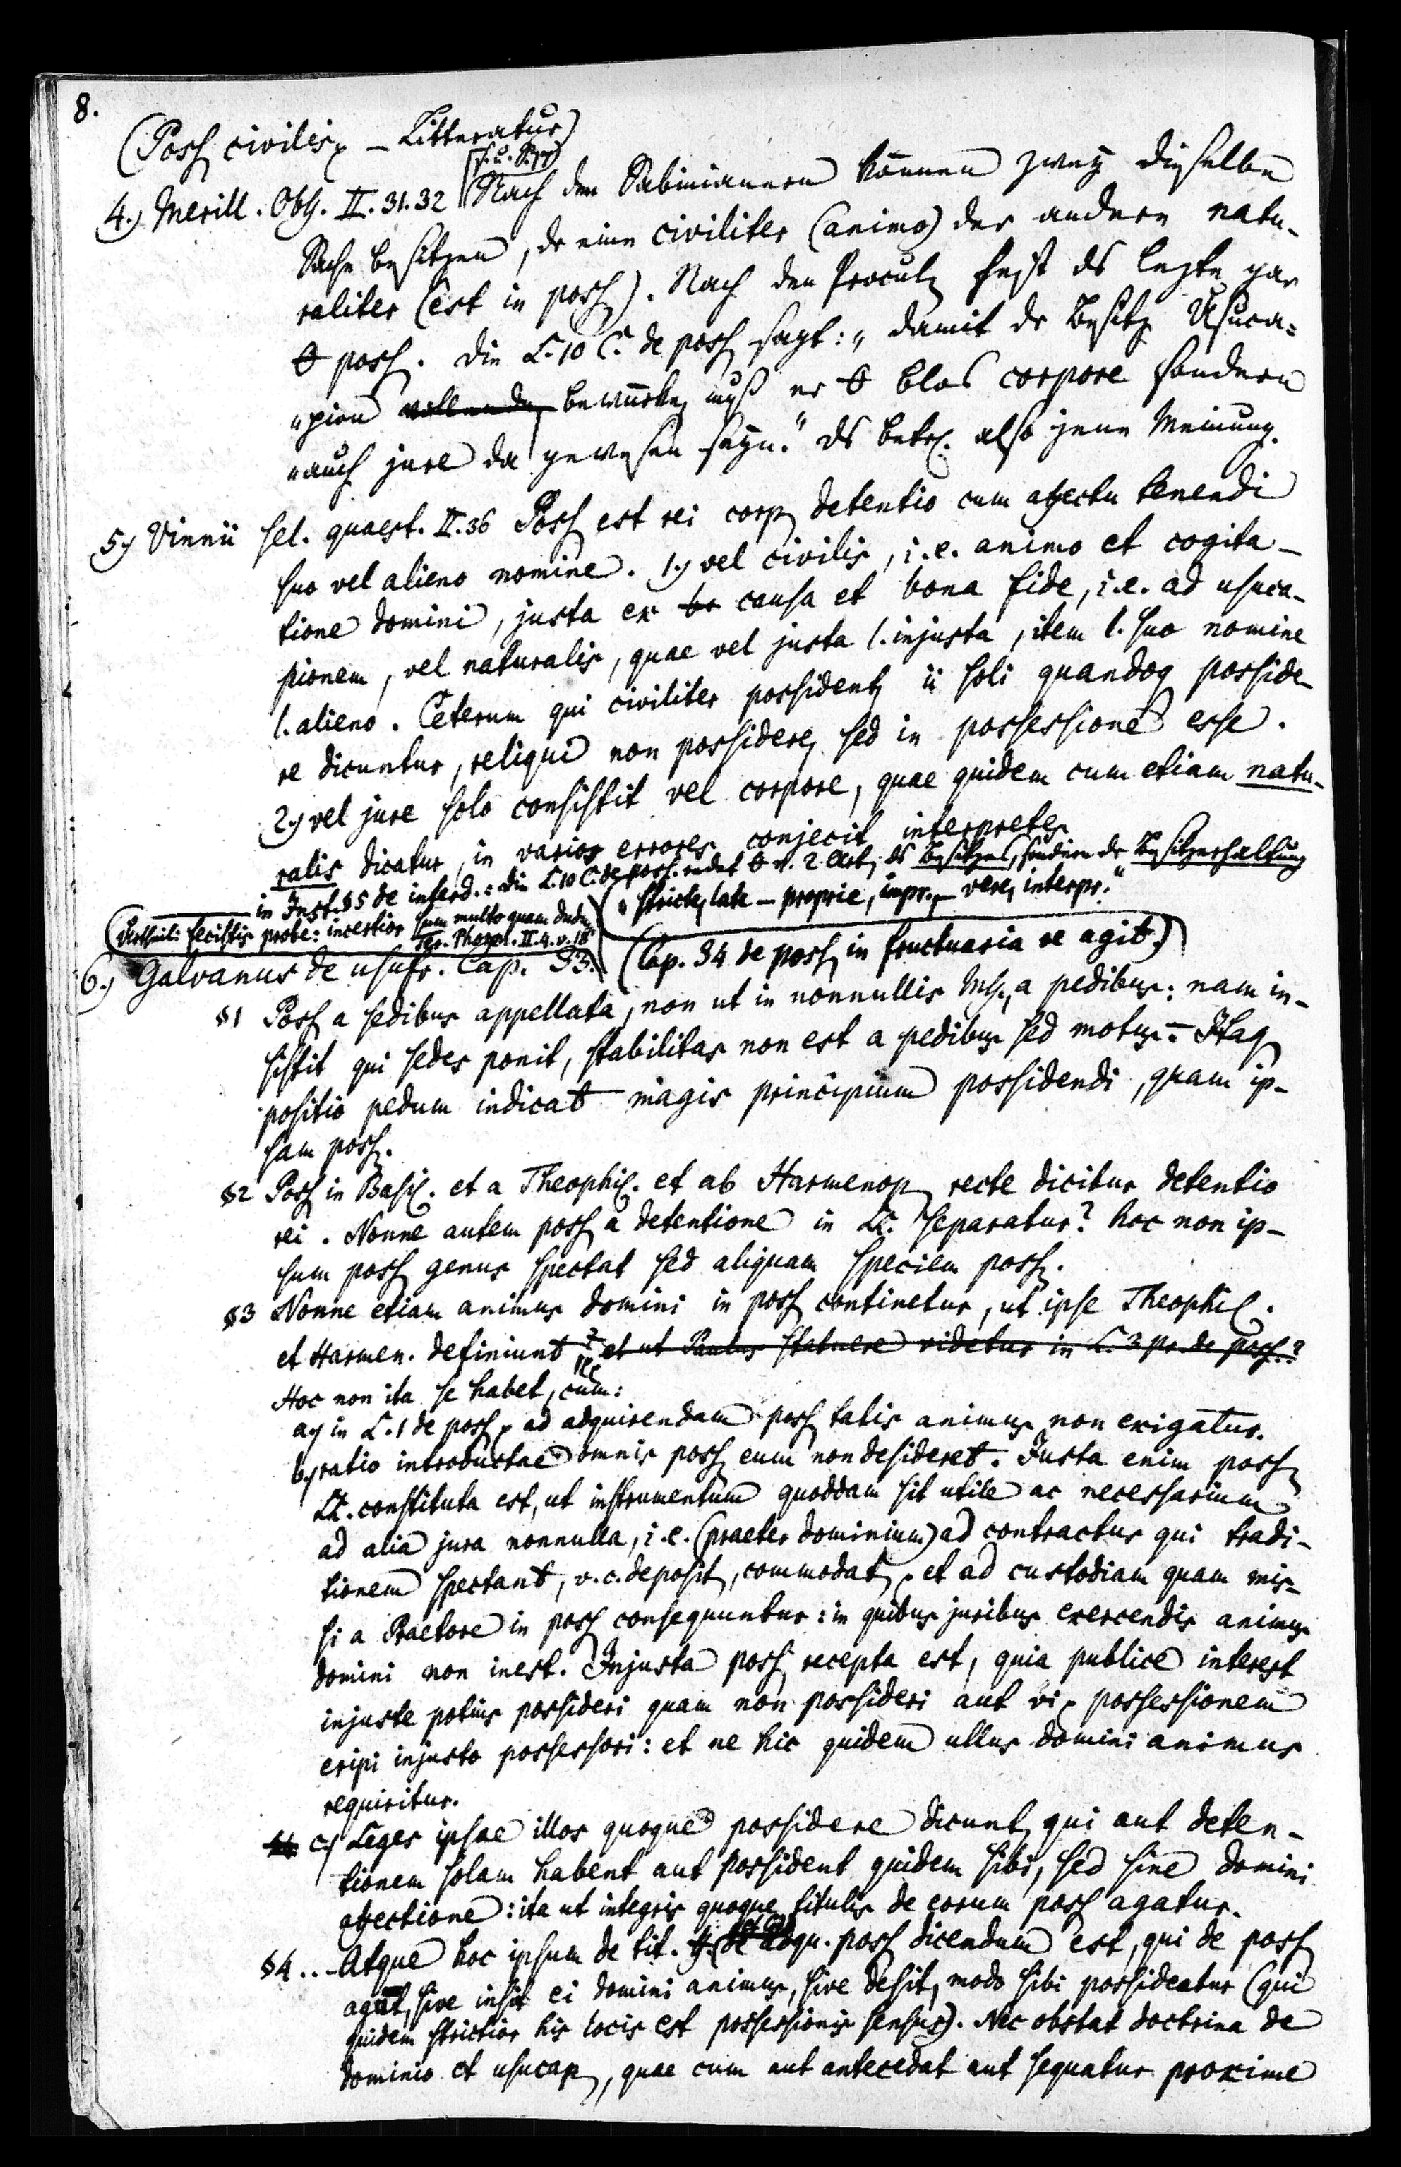 8.
(Poss civilis – Litteratur)
(s. u. S. 77)
4.) Merill. Obs. II. 31. 32 Nach den Sabinianern können zwey dieselbe
Sache besitzen, dr eine civiliter (animo) der andere natu-
raliter (est in poss). Nach den Procul heist ds lezte gar
poss. Die L. 10 C. de poss sagt: „damit dr Besitz Usuca=
„pion vollende bewürke, muß er blos corpore sondern
„auch jure da gewesen seyn." ds betr. also jene Meinung.
5.) Vinnii sel. quaest. II. 36 Poss est rei corp detentio cum affectu tenendi
suo vel alieno nomine. 1.) vel civilis, i.e. animo et cogita-
tione domini, justa ex bo causa et bona fide, i.e. ad usuca-
pionem, vel naturalis, quae vel justa l. injusta, item l. suo nomine
l. alieno. Ceterum qui civiliter possident, ii soli quandoq posside-
re dicuntur, reliqui non possidere, sed in possessione esse.
2.) vel jure solo consistit vel corpore, quae quidem cum etiam natu-
ralis dicatur, in varios errores conjecit interpretes
in Inst. §5 de interd.: die L. 10 C. de poss. redet v. 2 Art. ds Besitzes, sondern dr Besitzerhaltung
„stricte, late – proprie, impr., – vere, interpr."
(Vertheil: fecistis probe: incertior sum multo quam dudum
Ter. Phorm. II. 4. v. 18
6.) Galvanus de usufr. Cap. 33. (Cap. 34 de poss in fructuaria re agit.)
§1 Poss a sedibus appellata, non ut in nonnullis Mss., a pedibus: nam in-
sistit qui sedes ponit, stabilitas non est a pedibus sed motus. – Itaq
positio pedum indicat magis principium possidendi, quam ip-
sam poss.
§2 Poss in Basil. et a Theophil. et ab Harmenop recte dicitur detentio
rei. Nonne autem poss a detentione in LL. separatur? hoc non ip-
sum poss genus spectat sed aliquam speciem poss.
§3 Nonne etiam animus domini in poss continetur, ut ipse Theophil.
et Harmen. definiunt? et ut Paulus statuere videtur in L. 3 pr. de poss.?
Hoc non ita se habet, cum:
a) in L. 1 de poss ad adquirendam poss talis animus non exigatur.
b) ratio introductae omnis poss eum non desideret. Justa enim poss
LL. constituta est, ut instrumentum quoddam sit utile ac necessarium
ad alia jura nonnulla, i.e. (praeter dominium) ad contractus qui tradi-
tionem spectant, v.c. deposit, commodat, et ad custodiam quam mis-
si a Praetore in poss consequuntur: in quibus juribus exercendis animus
domini non inest. Injusta poss recepta est, quia publice interest
injuste potius possideri quam non possideri aut vi possessionem
eripi injusto possessori: et ne hic quidem ullus domini animus
requiritur.
§4 c) Leges ipsae illos quoque possidere dicunt, qui aut deten-
tionem solam habent aut possident quidem sibi, sed sine domini
affectione: ita ut integris quoque titulis de eorum poss agatur.
§4.. Atque hoc ipsum de tit. de adqu. poss dicendum est, qui de poss
agat, sive insit ei domini animus, sive desit, modo sibi possideatur (qui
quidem strictior his locis est possessionis sensus). Nec obstat doctrina de
dominio et usucap, quae cum aut antecedat aut sequatur proxime